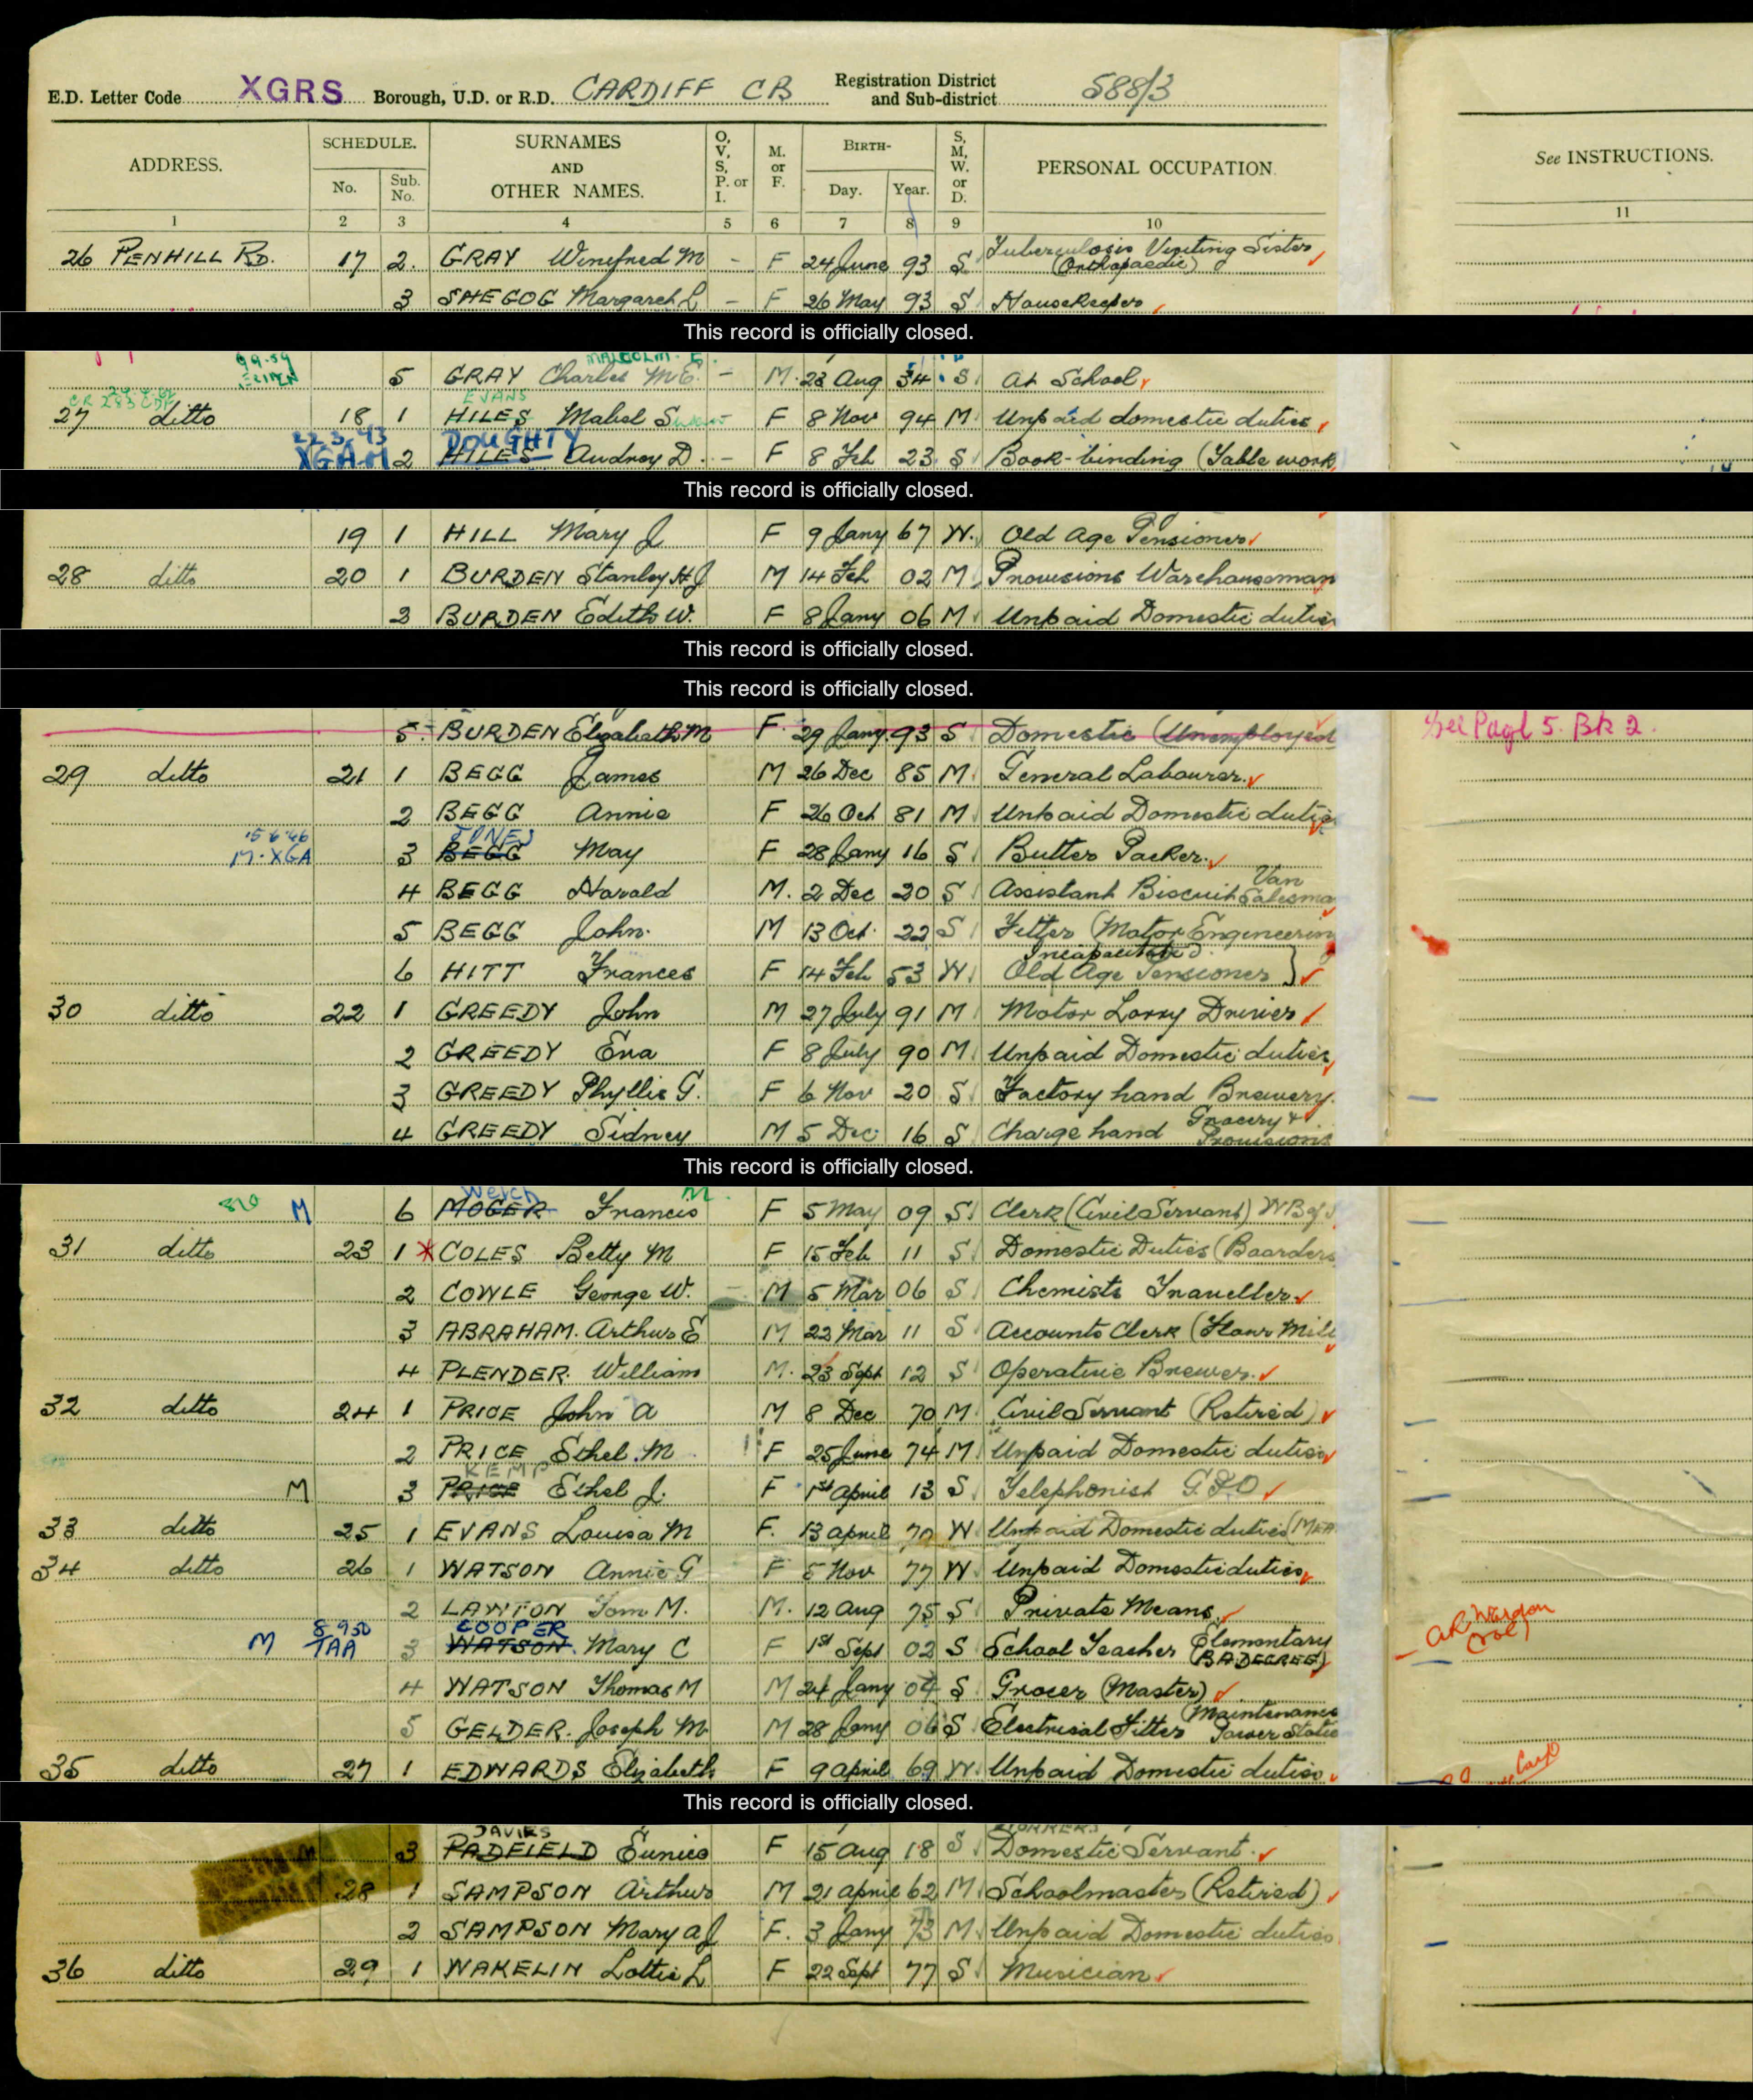 E.D. Letter Code XGRS Borough, U.D. or R.D. CARDIFF CB Registration District and Sub-district 588/3
ADDRESS. SCHEDULE. No. Sub. No. SURNAMES AND OTHER NAMES. O, V, S, P. or I. M. or F. BIRTH- Day. Year. S, M, W. or D. PERSONAL OCCUPATION See INSTRUCTIONS.
1 2 3 4 5 6 7 8 9 10 11
26 PENHILL RD. 17 2. GRAY Winefred M - F 24 June 93 S Tuberculosis Visiting Sister (Orthopaedic)
3 SHEGOG Margaret L - F 26 May 93 S Housekeeper
This record is officially closed.
MALCOLM E.
5 GRAY Charles M E. - M 23 Aug 34 S At School
EVANS
27 ditto 18 1 HILES Mabel S - F 8 Nov 94 M Unpaid domestic duties
22.3.43 DOUGHTY
XGAM 2 HILES Audrey D. - F 8 Feb 23 S Book-binding (Table work
This record is officially closed.
19 1 HILL Mary J F 9 Jany 67 W. Old Age Pensioner
28 ditto 20 1 BURDEN Stanley H J M 14 Feb 02 M Provisions Warehouseman
2 BURDEN Edith W. F 8 Jany 06 M Unpaid Domestic duties
This record is officially closed.
This record is officially closed.
5 BURDEN Elizabeth M F 29 Jany 93 S Domestic (Unemployed See Page 5. Bk 2.
29 ditto 21 1 BEGG James M 26 Dec 85 M General Labourer
2 BEGG Annie F 26 Oct 81 M Unpaid Domestic duties
15.6.46 JONES
17.XGA 3 BEGG May F 28 Jany 16 S Butter Packer
4 BEGG Harold M. 2 Dec 20 S Assistant Biscuit Van Salesma
5 BEGG John M 13 Oct 22 S Fitter (Motor Engineering
6 HITT Frances F 14 Feb 53 W Incapacitated Old Age Pensioner
30 ditto 22 1 GREEDY John M 27 July 91 M Motor Lorry Driver
2 GREEDY Eva F 8 July 90 M Unpaid Domestic duties
3 GREEDY Phyllis G. F 6 Nov 20 S Factory hand Brewery
4 GREEDY Sidney M 5 Dec 16 S Charge hand Grocery & Provisions
This record is officially closed.
Welch
M 6 MOGER Francis F 5 May 09 S Clerk (Civil Servant)
31 ditto 23 1 COLES Betty M F 15 Feb 11 S Domestic Duties (Boarders
2 COWLE George W. - M 5 Mar 06 S Chemists Traveller
3 ABRAHAM. Arthur E M 22 Mar 11 S Accounts Clerk (Flour Mill
4 PLENDER. William M. 23 Sept 12 S Operative Brewer
32 ditto 24 1 PRICE John A M 8 Dec 70 M Civil Servant (Retired)
2 PRICE Ethel M F 25 June 74 M Unpaid Domestic duties
KEMP
M 3 PRICE Ethel J. F 1st April 13 S Telephonist G.P.O
33 ditto 25 1 EVANS Louisa M F. 13 April 70 W Unpaid Domestic duties
34 ditto 26 1 WATSON Annie G F 5 Nov 77 W Unpaid Domestic duties
2 LAWTON Tom M. M. 12 Aug 75 S Private Means
COOPER
M 8.9.50 TAA 3 WATSON. Mary C F 1st Sept 02 S School Teacher Elementary (BA DEGREE) AR Warden (vol)
4 WATSON Thomas M M 24 Jany 04 S Grocer (Master)
5 GELDER. Joseph M M 28 Jany 06 S Electrical Fitter (Maintenance Power Statio
35 ditto 27 1 EDWARDS Elizabeth F 9 April 69 W. Unpaid Domestic duties
This record is officially closed.
DAVIES
3 PADFIELD Eunice F 15 Aug 18 S Domestic Servant
28 1 SAMPSON Arthur M 21 April 62 M Schoolmaster (Retired)
2 SAMPSON Mary A J F. 3 Jany 73 M Unpaid Domestic duties
36 ditto 29 1 WAKELIN Lottie L F 22 Sept 77 S Musician